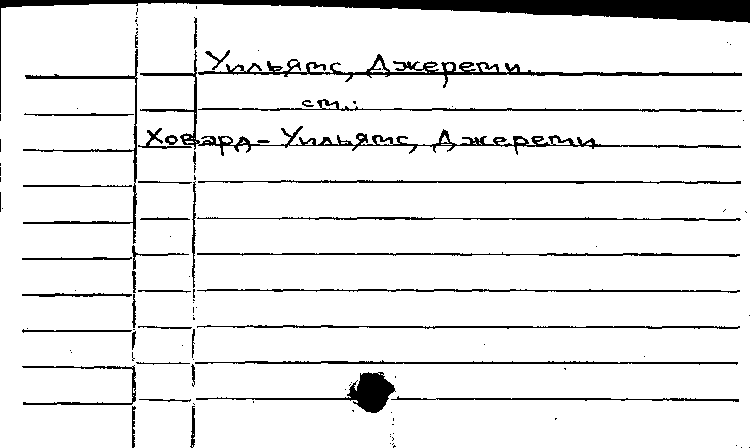 Уильямс, Джереми.
см.:
Ховард-Уильямс, Джереми